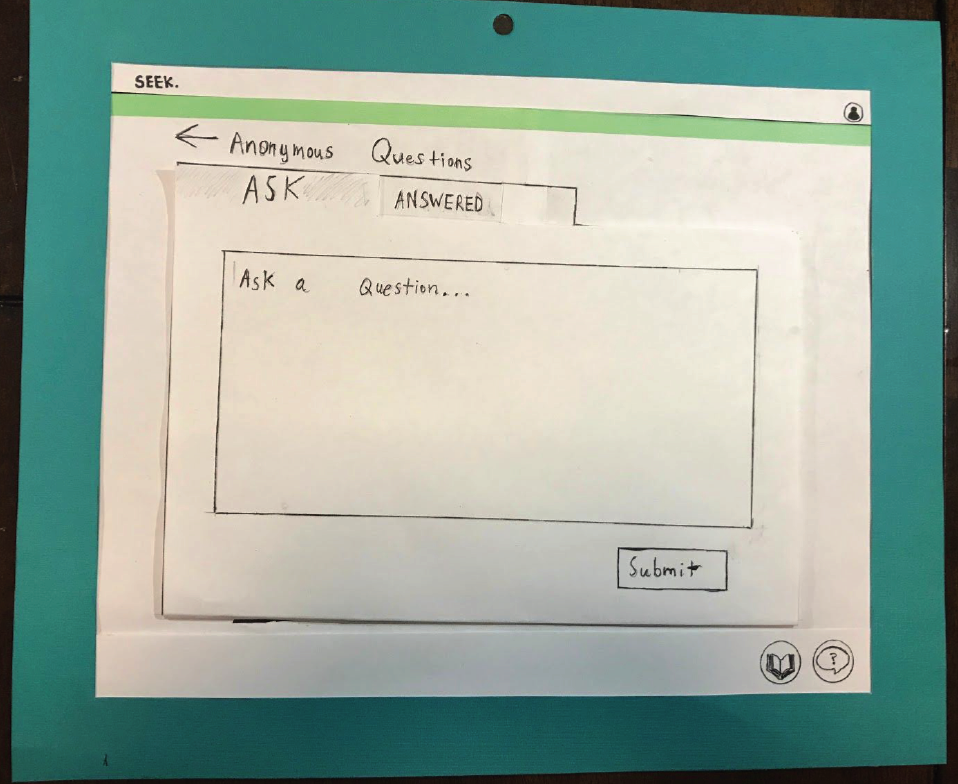 SEEK.
← Anonymous Questions
ASK ANSWERED
Ask a Question...
Submit
?